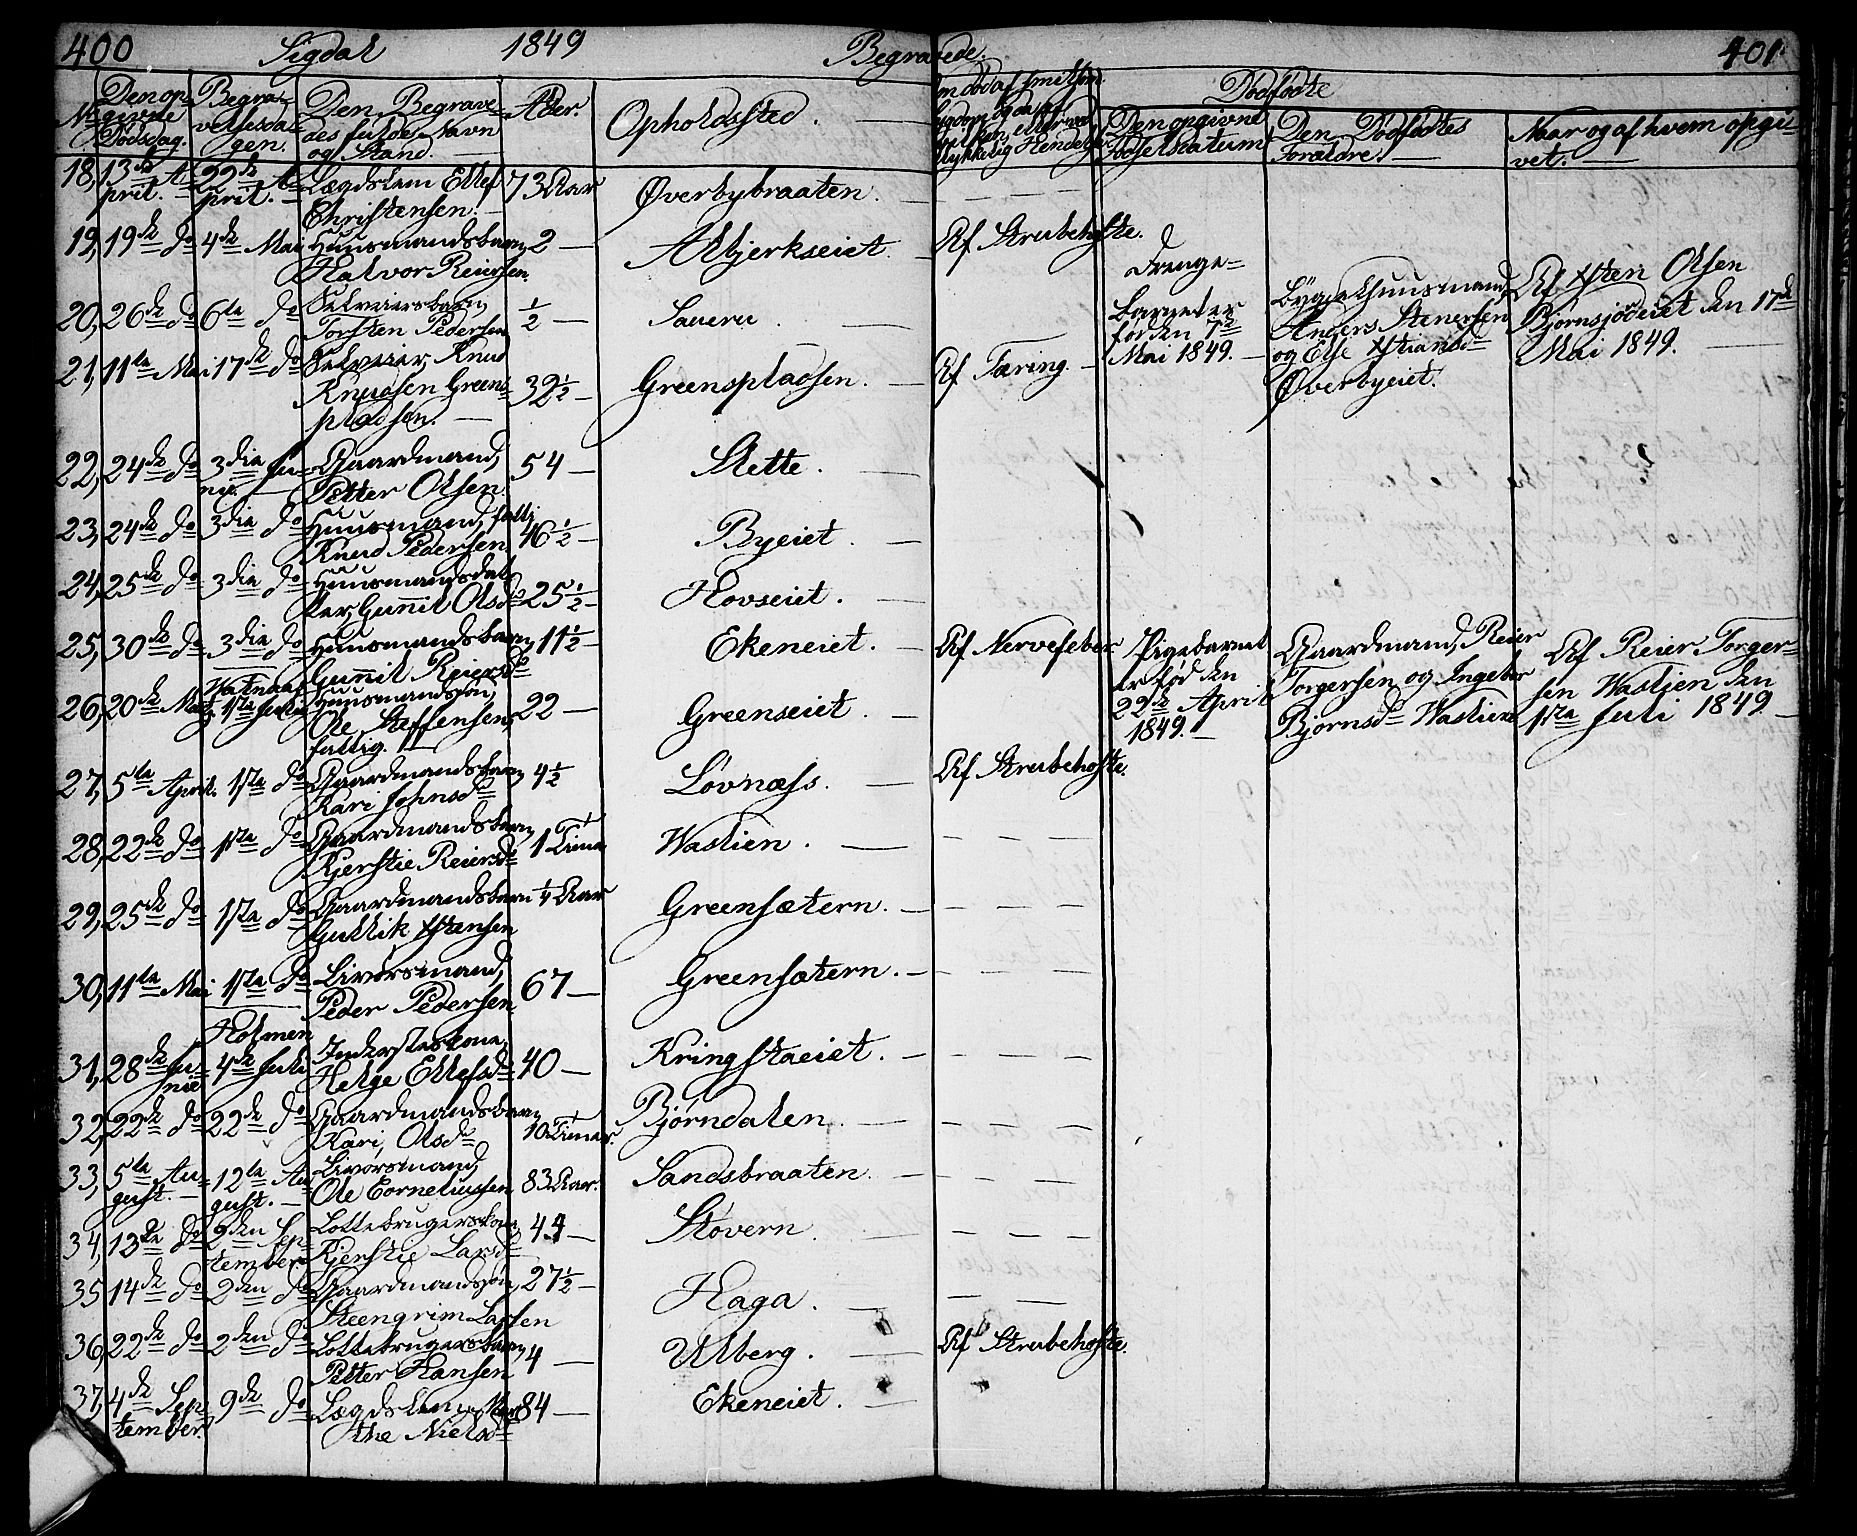 400 Sigdal 1849 Begravede. 401
N. Den op- givne Dødsdag. Begra- velsesda- gen. Den Begrave- des fulde Navn og Stand. Alder. Opholdssted. Dødfødte
Den opgivne Fødselsdatum Den Dødfødtes Forældre. Naar og af hvem opgi- vet.
18, 13de A- pril. 22de A- pril. Lægdslem Ellef Christensen. 73 Aar Øverbybraaten.
19, 19de do 4de Mai Huusmandsbarn Halvor Reiersen. 2 Albjerkseiet. Af Strubehoste.
20, 26de do 6te do Selveiersbarn Torsten Pedersen ½ Laueru.
Drenge- barnet er fød den 7de Mai 1849. Bygselhuusmand Anders Stenersen og Else Kristiansd. Øverbyeiet. Af Kristen Olsen Bjørnsjødeiet den 17de Mai 1849.
21, 11te Mai 17de do Selveier, Knud Knudsen Greens- pladsen. 32½ Greenspladsen. Af Tæring
22, 24de do 3die Ju- nii. Gaardmand, Petter Olsen. 54 Slette.
23, 24de do 3die do Huusmand, fatt: Knud Pedersen 46½ Byeiet.
24, 25de do 3die do Huusmandsdat- ter, Gunnil Olsd. 25½ Hovseiet.
25, 30de do 3die do Huusmandsbarn Gunnil Reiersd. 11½ Ekeneiet. Af Nervefeber
Pigebarnet er fød den 22de April 1849. Gaardmand, Reier Torgersen og Ingebor Bjørnsd. Waslien Af Reier Torger- sen Waslien den 1ste Juli 1849.
Watnaas
26, 20de Marts 1ste Juli Huusmandssøn, Ole Steffensen, fattig. 22 Greenseiet.
27, 5te April. 1ste do Gaardmandsbarn Kari Johnsd. 4½ Løvnæss. Af Strubehoste.
28, 22de do 1ste do Gaardmandsbarn Kjerstie Reiersd. 1 Time Waslien.
29, 25de do 1ste do Gaardmandsbarn Gullik Kristensen ¼ Aar Greensætern.
30, 11te Mai 1ste do Livørsmand, Peder Pedersen 67 Greensætern.
Holmen
31, 28de Ju- nii 4de Juli Inderstekone, Helge Ellefsd. 40 Kringstaeiet.
32, 22de do 22de do Gaardmandsbarn Kari, Olsd. 10 Timer. Bjørndalen
33, 5te Au- gust. 12te Au- gust. Livørsmand, Ole Corneliussen 83 Aar. Sandsbraaten.
34, 13de do 2den Sep- tember Lottebrugerskone Kjerstie Larsd. 44 Stovern
35 14de do 2den do Gaardmandssøn, Steengrim Larsen 27½ Haga.
36, 22de do 2den do Lottebrugersbarn Petter Hansen 4 Ulberg. Af Strubehoste.
37, 4de Sep- tember. 9de do Lægdslem, Mar- the Nielsd. 84 Ekeneiet.